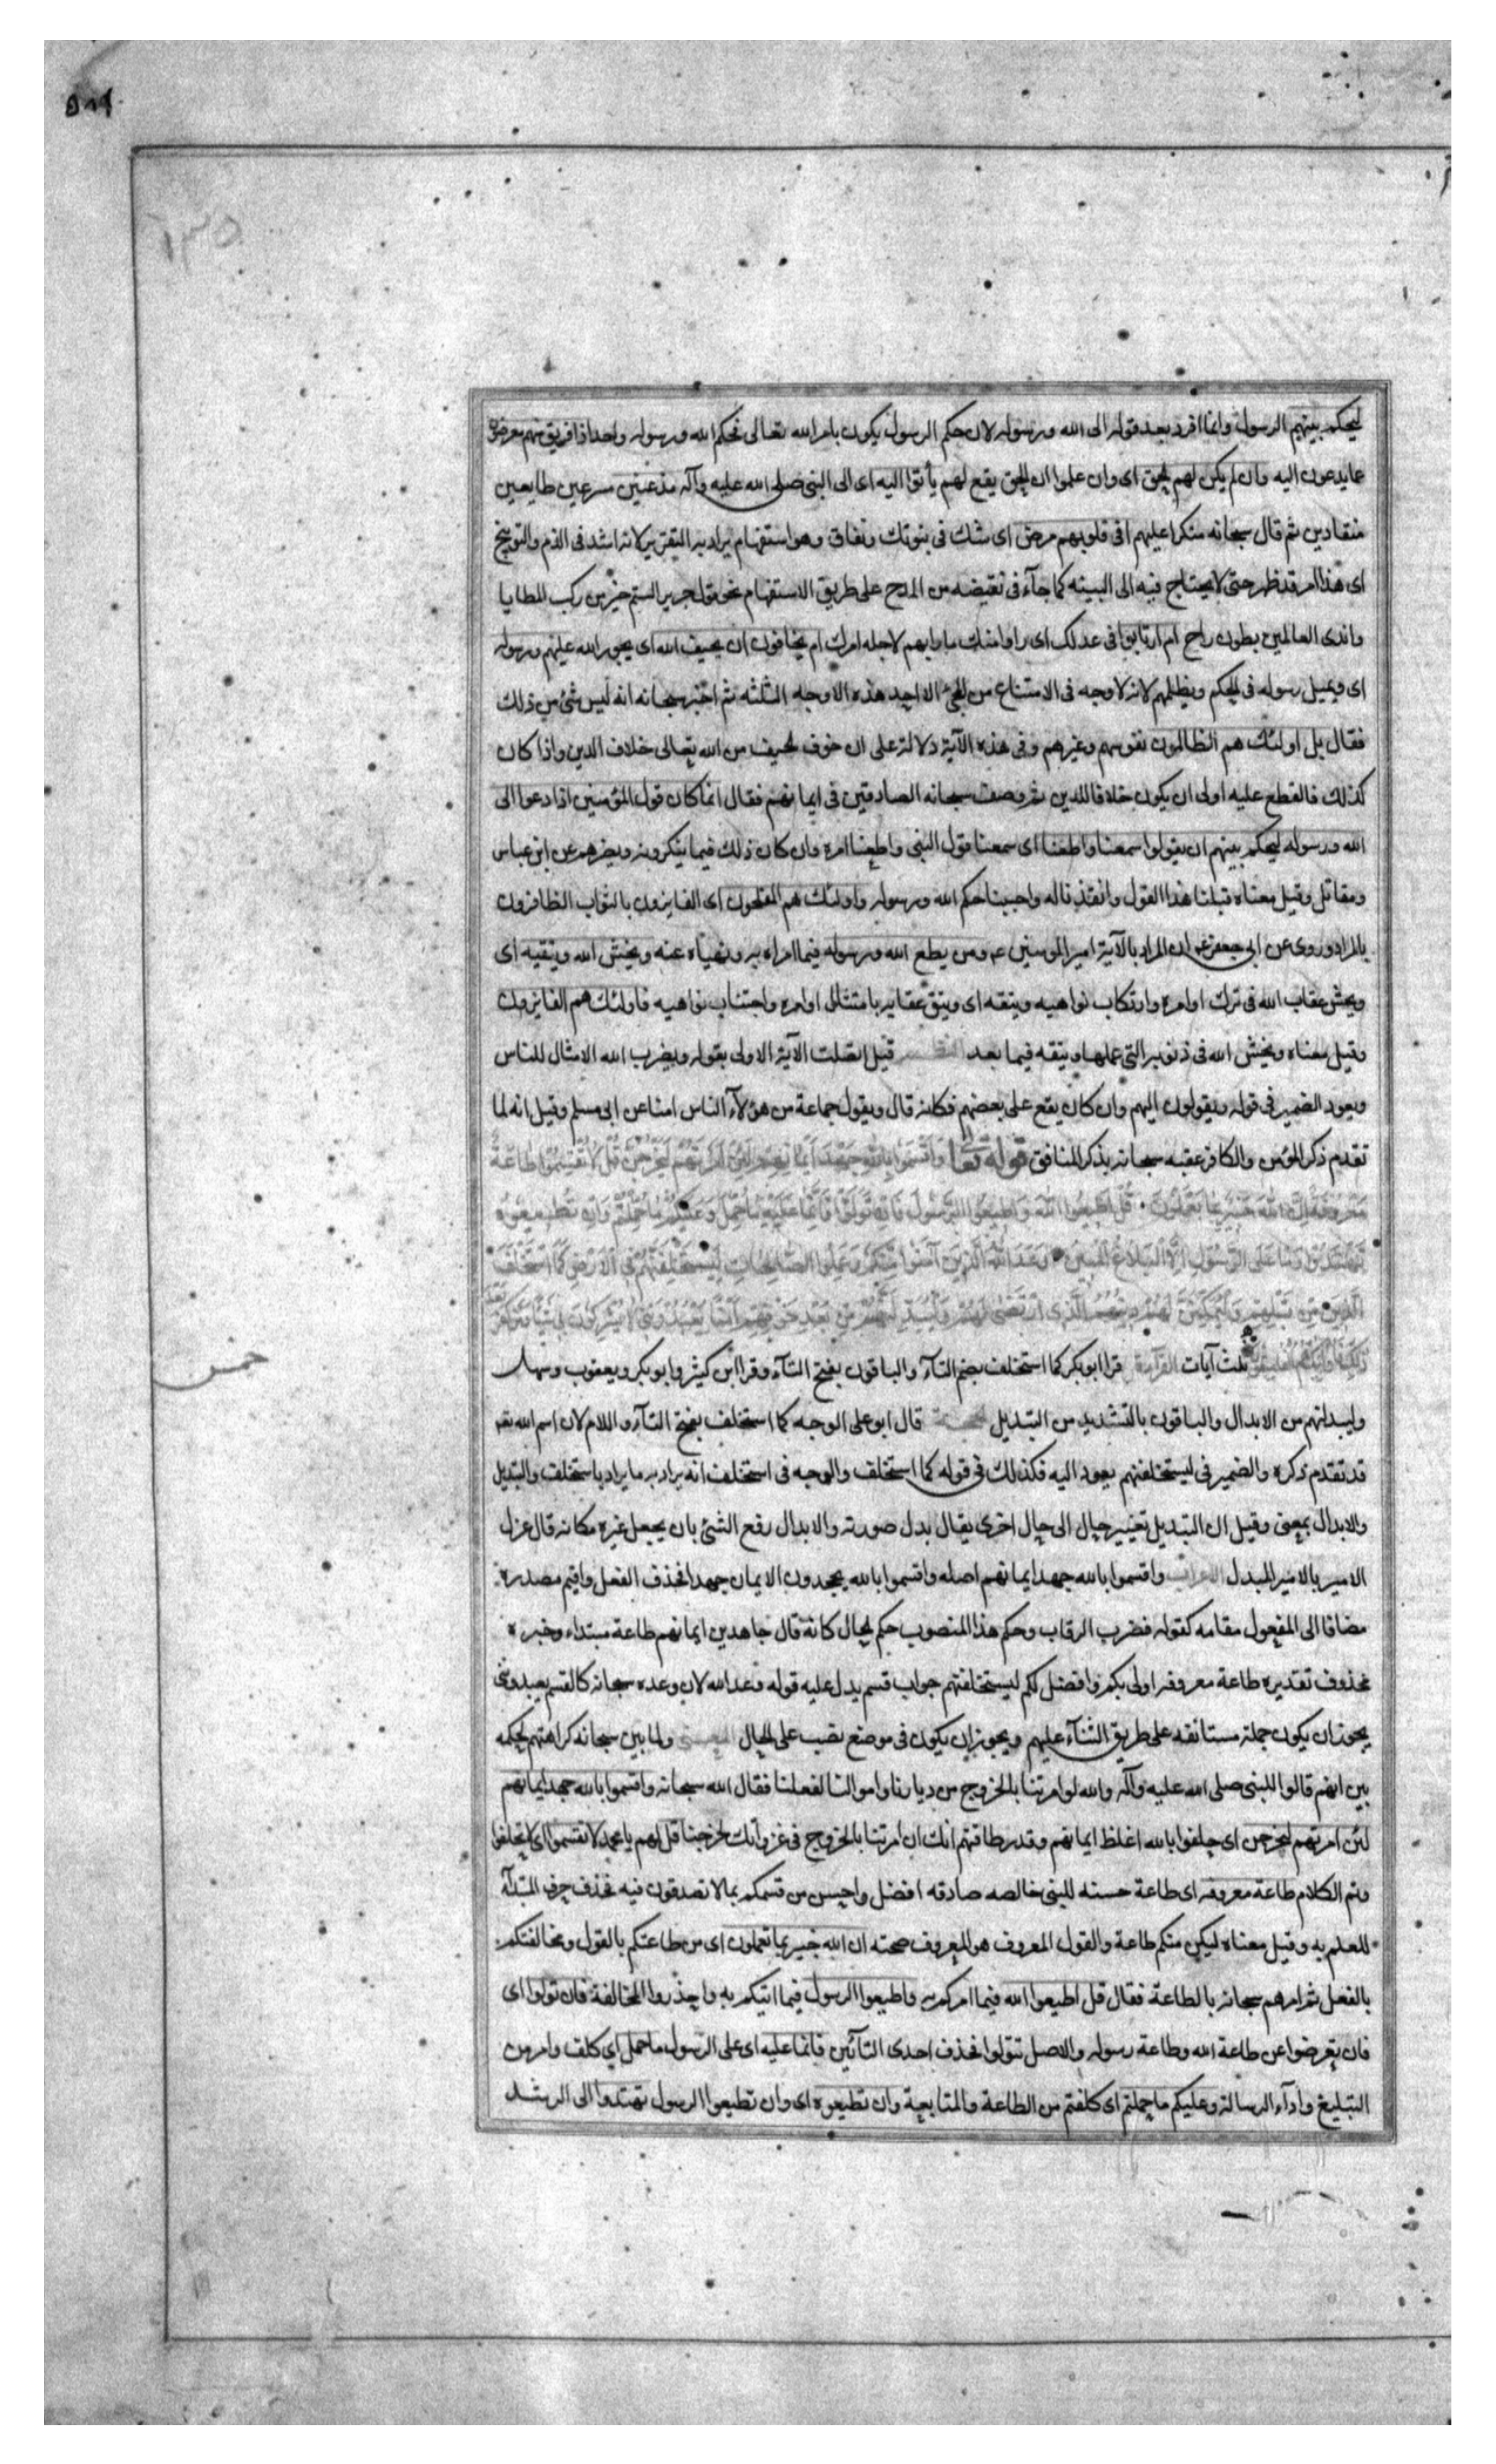 ٥٨٩
١٣٥
ليحكم بينهم الرسول وانما افرد بعد قوله الى الله ورسوله لان حكم الرسول يكون بامر الله تعالى فحكم الله ورسوله واحد اذا فريق منهم معرضون
عما يدعون اليه وان لم يكن لهم الحق اى وان علموا ان الحق يقع لهم يأتوا اليه اى الى النبى صلى الله عليه وآله مذعنين مسرعين طايعين
منقادين ثم قال سبحانه منكرا عليهم افى قلوبهم مرض اى شك فى بنوتك ونفاق وهو استفهام يراد به التقرير لانه اشد فى الذم والتوبيخ
اى هذا امر قد ظهر حتى لا يحتاج فيه الى البينه كما جآء فى نقيضه من المدح على طريق الاستفهام نحو قول جرير الستم خير من ركب المطايا
واندى العالمين بطون راح ام ارتابوا فى عدلك اى راوا منك ما رابهم لاجله امرك ام يخافون ان يحيف الله اى يجور الله عليهم ورسوله
اى ويميل رسوله فى الحكم ويظلمهم لانه لا وجه فى الامتناع من المجئ الا احد هذه الاوجه الثلثه ثم اخبر سبحانه انه ليس شئ من ذلك
فقال بل اولئك هم الظالمون نفوسهم وغيرهم وفى هذه الآية دلالة على ان خوف الحيف من الله تعالى خلاف الدين واذا كان
كذلك فالقطع عليه اولى ان يكون خلافا للدين ثم وصف سبحانه الصادقين فى ايمانهم فقال انما كان قول المؤمنين اذا دعوا الى
الله ورسوله ليحكم بينهم ان يقولوا سمعنا واطعنا اى سمعنا قول النبى واطعنا امره وان كان ذلك فيما يكرهونه ويضرهم عن ابن عباس
ومقاتل وقيل معناه قبلنا هذا القول وانقدنا له واجبنا حكم الله ورسوله واولئك هم المفلحون اى الفايزون بالثواب الظافرون
بالمراد وروى عن ابى جعفر ع ان المراد بالآية امير المومنين ع ومن يطع الله ورسوله فيما امراه به ونهياه عنه ويخش الله ويتقيه اى
ويخش عقاب الله فى ترك اوامره وارتكاب نواهيه ويتقه اى ويتق عقابه بامتثال اوامره واجتناب نواهيه فاولئك هم الفايزون
وقيل معناه ويخش الله فى ذنوبه التى عملها ويتقه فيما بعد النظم قيل اتصلت الآية الاولى بقوله ويضرب الله الامثال للناس
ويعود الضمير فى قوله ويقولون اليهم وان كان يقع على بعضهم فكانه قال ويقول جماعة من هؤلآء الناس امنا عن ابى مسلم وقيل انه لما
تقدم ذكر المؤمن والكافر عقبه سبحانه بذكر المنافق قوله تعالى وَاَقْسَمُوا بِاللهِ جَهْدَ اَيْمَانِهِمْ لَئِنْ اَمَرْتَهُمْ لَيَخْرُجُنَّ قُلْ لَا تُقْسِمُوا طَاعَةٌ
مَعْرُوفَةٌ اِنَّ اللهَ خَبِيرٌ بِمَا تَعْمَلُونَ قُلْ اَطِيعُوا اللهَ وَاَطِيعُوا الرَّسُولَ فَاِنْ تَوَلَّوْا فَاِنَّمَا عَلَيْهِ مَا حُمِّلَ وَعَلَيْكُمْ مَا حُمِّلْتُمْ وَاِنْ تُطِيعُوهُ
تَهْتَدُوا وَمَا عَلَى الرَّسُولِ اِلَّا الْبَلَاغُ الْمُبِينُ وَعَدَ اللهُ الَّذِينَ آمَنُوا مِنْكُمْ وَعَمِلُوا الصَّالِحَاتِ لَيَسْتَخْلِفَنَّهُمْ فِى الْاَرْضِ كَمَا اسْتَخْلَفَ
الَّذِينَ مِنْ قَبْلِهِمْ وَلَيُمَكِّنَنَّ لَهُمْ دِينَهُمُ الَّذِى ارْتَضَى لَهُمْ وَلَيُبَدِّلَنَّهُمْ مِنْ بَعْدِ خَوْفِهِمْ اَمْنًا يَعْبُدُونَنِى لَا يُشْرِكُونَ بِى شَيْئًا وَمَنْ كَفَرَ بَعْدَ
ذَلِكَ فَاُولَئِكَ هُمُ الْفَاسِقُونَ ثلث آيات القرآءة قرا ابو بكر كما استخلف بضم التآء والباقون بفتح التآء وقرا ابن كثير وابو بكر ويعقوب وسهل
خمس
وليبدلنهم من الابدال والباقون بالتشديد من التبديل الحجة قال ابو على الوجه كما استخلف بفتح التآء واللام لان اسم الله تعـ
قد تقدم ذكره والضمير فى ليستخلفنهم يعود اليه فكذلك فى قوله كما استخلف والوجه فى استخلف انه يراد به ما يراد باستخلف والتبديل
والابدال بمعنى وقيل ان التبديل تغيير حال الى حال اخرى يقال بدل صورته والابدال رفع الشئ بان يجعل غيره مكانه قال عزل
الامير بالامير المبدل الاعراب واقسموا بالله جهد ايمانهم اصله واقسموا بالله يجهدون الايمان جهدا فحذف الفعل واقيم مصدره
مضافا الى المفعول مقامه كقوله فضرب الرقاب وحكم هذا المنصوب حكم الحال كانه قال جاهدين ايمانهم طاعة مبتداء وخبره
محذوف تقديره طاعة معروفه اولى بكم وافضل لكم ليستخلفنهم جواب قسم يدل عليه قوله وعد الله لان وعده سبحانه كالقسم يعبدوننى
يجوز ان يكون جملة مستانفه على طريق الثنآء عليهم ويجوز ان يكون فى موضع نصب على الحال المعنى ولما بين سبحانه كراهتهم لحكمه
بين انهم قالوا للنبى صلى الله عليه وآله والله لو امرتنا بالخروج من ديارنا واموالنا لفعلنا فقال الله سبحانه واقسموا بالله جهد ايمانهم
لئن امرتهم ليخرجن اى حلفوا بالله اغلظ ايمانهم وقدر طاقتهم انك ان امرتنا بالخروج فى غزواتك لخرجنا قل لهم يا محمد لا تقسموا اى لا تحلفوا
وتم الكلام طاعة معروفه اى طاعة حسنه للنبى خالصه صادقه افضل واحسن من قسمكم بما لا تصدقون فيه فحذف حرف المبتدآء
للعلم به وقيل معناه ليكن منكم طاعة والقول المعروف هو المعروف صحته ان الله خبير بما تعملون اى من طاعتكم بالقول ومخالفتكم
بالفعل ثم امرهم سبحانه بالطاعة فقال قل اطيعوا الله فيما امركم به واطيعوا الرسول فيما اتيكم به واحذروا المخالفة فان تولوا اى
فان تعرضوا عن طاعة الله وطاعة رسوله والاصل تتولوا فحذف احدى التآئين فانما عليه اى على الرسول ما حمل اى كلف وامر من
التبليغ وادآء الرسالة وعليكم ما حملتم اى كلفتم من الطاعة والمتابعة وان تطيعوه اى وان تطيعوا الرسول تهتدوا الى الرشد